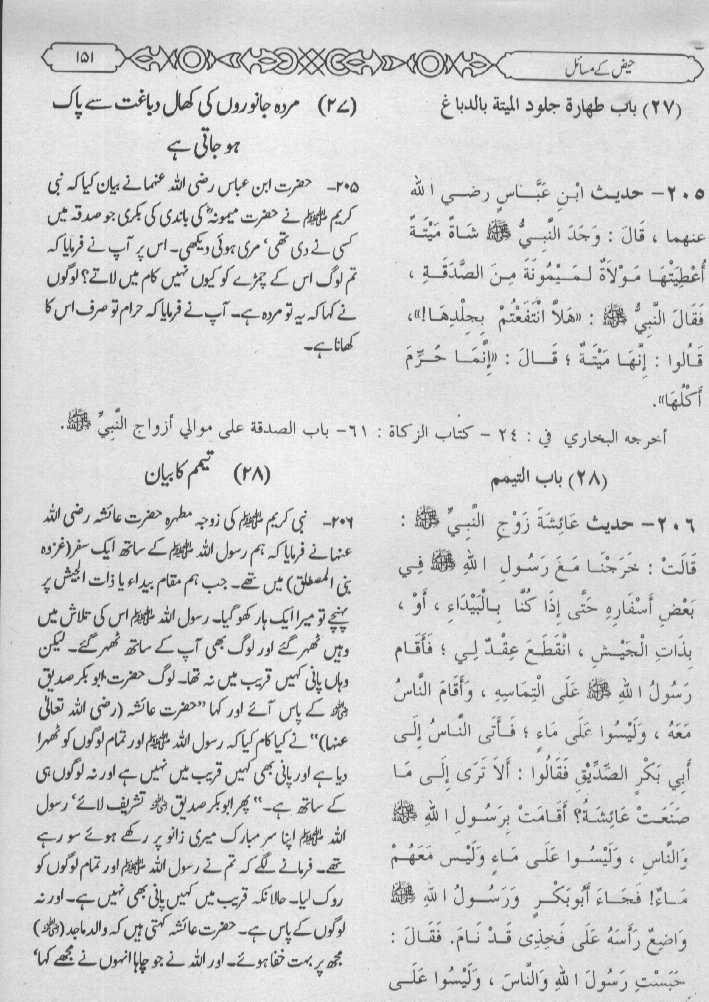 حیض کے مسائل
۱۵۱
(٢٧) باب طهارة جلود الميتة بالدباغ
٢٠٥- حديث ابْنِ عَبَّاسٍ رضي الله
عنهما ، قَالَ : وَجَدَ النَّبِيُّ ﷺ شَاةً مَيْتَةً
أُعْطِيَتْهَا مَوْلَاةٌ لِمَيْمُونَةَ مِنَ الصَّدَقَةِ ،
فَقَالَ النَّبِيُّ ﷺ : «هَلاَّ انْتَفَعْتُمْ بِجِلْدِهَا!»،
قَالُوا : إِنَّهَا مَيْتَةٌ ؛ قَالَ : «إِنَّمَا حَرُمَ
أَكْلُهَا».
(۲۷) مردہ جانوروں کی کھال دباغت سے پاک
ہو جاتی ہے
۲۰۵- حضرت ابن عباس رضی اللہ عنہما نے بیان کیا کہ نبی
کریم ﷺ نے حضرت میمونہؓ کی باندی کی بکری جو صدقہ میں
کسی نے دی تھی‘ مری ہوئی دیکھی۔ اس پر آپ نے فرمایا کہ
تم لوگ اس کے چمڑے کو کیوں نہیں کام میں لاتے؟ لوگوں
نے کہا کہ یہ تو مردہ ہے۔ آپ نے فرمایا کہ حرام تو صرف اس کا
کھانا ہے۔
أخرجه البخاري في : ٢٤ - كتاب الزكاة : ٦١- باب الصدقة على موالي أزواج النَّبِيِّ ﷺ.
(٢٨) باب التيمم
٢٠٦- حديث عَائِشَةَ زَوْجِ النَّبِيِّ ﷺ :
قَالَتْ : خَرَجْنَا مَعَ رَسُولِ اللهِ ﷺ فِي
بَعْضِ أَسْفَارِهِ حَتَّى إِذَا كُنَّا بِالْبَيْدَاءِ ، أَوْ ،
بِذَاتِ الْجَيْشِ ، انْقَطَعَ عِقْدٌ لِي ؛ فَأَقَامَ
رَسُولُ اللهِ ﷺ عَلَى الْتِمَاسِهِ ، وَأَقَامَ النَّاسُ
مَعَهُ ، وَلَيْسُوا عَلَى مَاءٍ ؛ فَأَتَى النَّاسُ إِلَى
أَبِي بَكْرٍ الصِّدِّيقِ فَقَالُوا : أَلاَ تَرَى إِلَى مَا
صَنَعَتْ عَائِشَةُ؟ أَقَامَتْ بِرَسُولِ اللهِ ﷺ
وَالنَّاسِ ، وَلَيْسُوا عَلَى مَاءٍ وَلَيْسَ مَعَهُمْ
مَاءٌ! فَجَاءَ أَبُوبَكْرٍ وَرَسُولُ اللهِ ﷺ
وَاضِعٌ رَأْسَهُ عَلَى فَخِذِي قَدْ نَامَ. فَقَالَ :
حَبَسْتِ رَسُولَ اللهِ وَالنَّاسَ ، وَلَيْسُوا عَلَى
(۲۸) تیمم کا بیان
۲۰۶- نبی کریم ﷺ کی زوجہ مطہرہ حضرت عائشہ رضی اللہ
عنہا نے فرمایا کہ ہم رسول اللہ ﷺ کے ساتھ ایک سفر (غزوہ
بنی المصطلق) میں تھے۔ جب ہم مقام بیداء یا ذات الجیش پر
پہنچے تو میرا ایک ہار کھو گیا۔ رسول اللہ ﷺ اس کی تلاش میں
وہیں ٹھہر گئے اور لوگ بھی آپ کے ساتھ ٹھہر گئے۔ لیکن
وہاں پانی کہیں قریب میں نہ تھا۔ لوگ حضرت ابو بکر صدیق
ؓ کے پاس آئے اور کہا ”حضرت عائشہ (رضی اللہ تعالیٰ
عنہا)“ نے کیا کام کیا کہ رسول اللہ ﷺ اور تمام لوگوں کو ٹھہرا
دیا ہے اور پانی بھی کہیں قریب میں نہیں ہے اور نہ لوگوں ہی
کے ساتھ ہے۔“ پھر ابو بکر صدیق ؓ تشریف لائے‘ رسول
اللہ ﷺ اپنا سر مبارک میری زانو پر رکھے ہوئے سو رہے
تھے۔ فرمانے لگے کہ تم نے رسول اللہ ﷺ اور تمام لوگوں کو
روک لیا۔ حالانکہ قریب میں کہیں پانی بھی نہیں ہے۔ اور نہ
لوگوں کے پاس ہے۔ حضرت عائشہ کہتی ہیں کہ والد ماجد (ؓ)
مجھ پر بہت خفا ہوئے۔ اور اللہ نے جو چاہا انہوں نے مجھے کہا‘